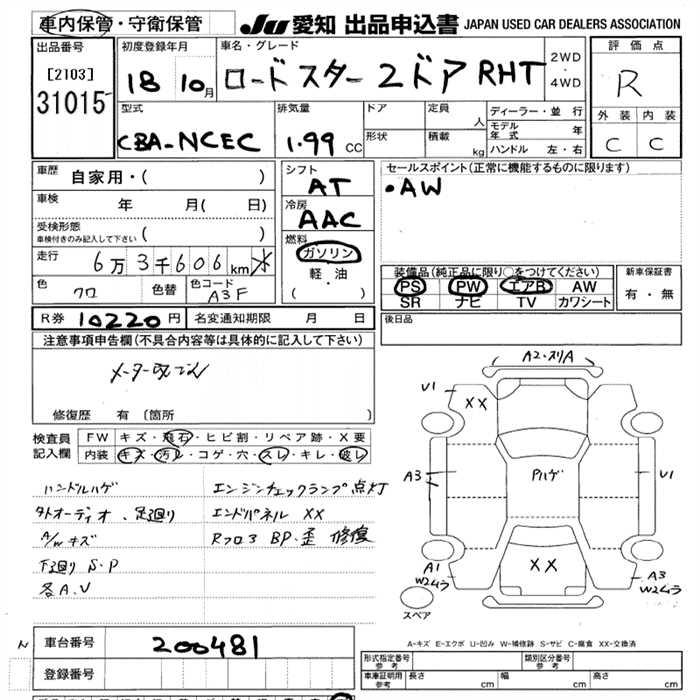 車内保管・守衛保管 JU 愛知 出品申込書 JAPAN USED CAR DEALERS ASSOCIATION
出品番号 [2103] 31015
初度登録年月 18 10月
車名・グレード ロードスター 2ドア RHT
2WD・4WD
評価点 R
外装 内装
C C
型式 CBA-NCEC
排気量 1.99 CC
ドア 形状
定員 人
積載 kg
ディーラー・並行
モデル年式 年
ハンドル 左・右
車歴 自家用・( )
車検 年 月( 日)
受検形態 車検付きのみ記入して下さい ( )
走行 6万3千606 km
色 クロ 色替 色コード A3F
シフト AT
冷房 AAC
燃料 ガソリン
軽・油
( )
セールスポイント(正常に機能するものに限ります)
・AW
装備品(純正品に限り○をつけてください)
PS PW エアB AW
SR ナビ TV カワシート
新車保証書
有・無
R券 10220円 名変通知期限 月 日
後日品
注意事項申告欄(不具合内容等は具体的に記入して下さい)
メーター改ざん
修復歴 有 〔箇所
検査員記入欄
FW キズ・飛石・ヒビ割・リペア跡・X要
内装 キズ・汚レ・コゲ・穴・スレ・キレ・破レ
ハンドルハゲ エンジンチェックランプ点灯
外オーディオ、足廻り エンドパネル XX
A/Wキズ Rフロア BP.歪 修復
下廻り S.P
各A.U
A2・スリA
U1
XX
A3
Pハゲ
U1
A1
W2ムラ
XX
A3
W2ムラ
スペア
A-キズ E-エクボ U-凹み W-補修跡 S-サビ C-腐食 XX-交換済
N
車台番号 200481
登録番号
形式指定番号 参考
類別区分番号 参考
車庫証明用 参考 長さ cm 幅 cm 高さ cm